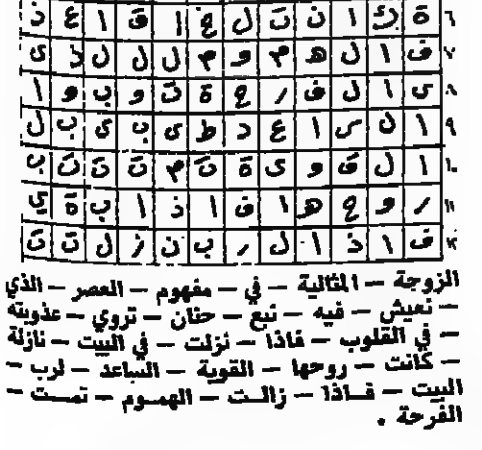 ٦ ة ك ا ن ت ل ج ا ق ا ع ذ
٧ ف ا ل ه م و م ل ل ل ذ ى
٨ ى ا ل ف ر ح ة ت و ب و ا
٩ ا ل س ا ع د ط ى ب ى ب ل
١٠ ا ل ق و ى ة ت م ت ت ت ب
١١ ر و ح ه ا ف ا ذ ا ب ة ي
١٢ ف ا ذ ا ل ر ب ن ز ل ت ت
الزوجة — المثالية — في — مفهوم — العصر — الذي
— نعيش — فيه — نبع — حنان — تروي — عذوبته
— في القلوب — فاذا — نزلت — في البيت — نازلة
— كانت — روحها — القوية — الساعد — لرب —
البيت — فاذا — زالت — الهموم — تمت —
الفرحة .